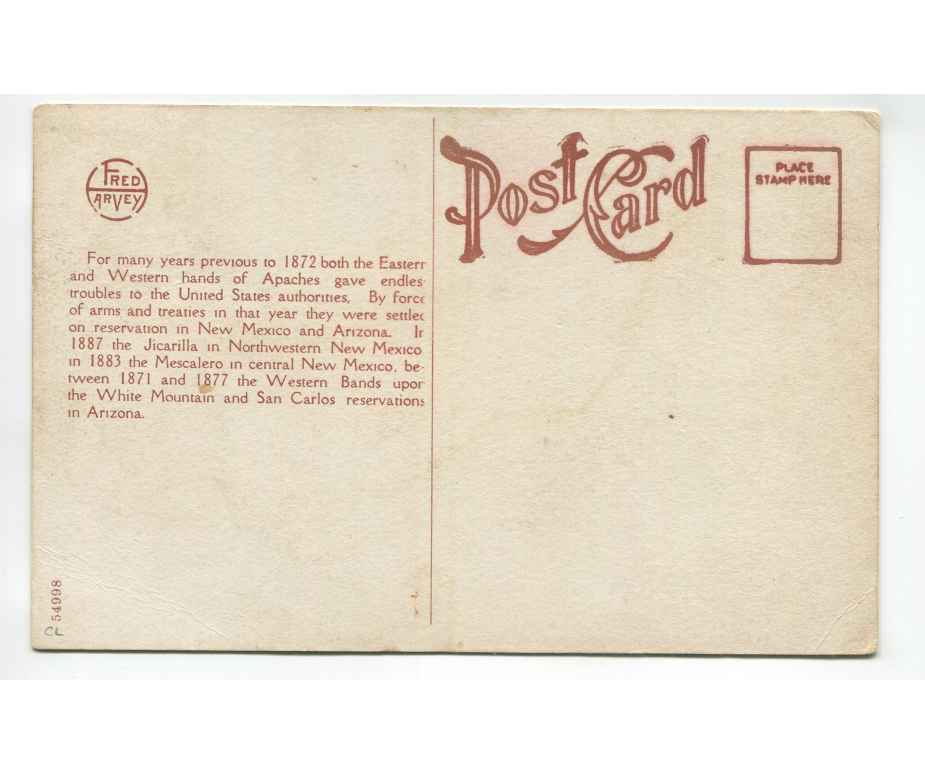 FRED
HARVEY
For many years previous to 1872 both the Eastern
and Western bands of Apaches gave endles
troubles to the United States authorities, By force
of arms and treaties in that year they were settled
on reservation in New Mexico and Arizona. In
1887 the Jicarilla in Northwestern New Mexico
in 1883 the Mescalero in central New Mexico, be-
tween 1871 and 1877 the Western Bands upon
the White Mountain and San Carlos reservations
in Arizona.
54998
CL
Post Card
PLACE
STAMP HERE